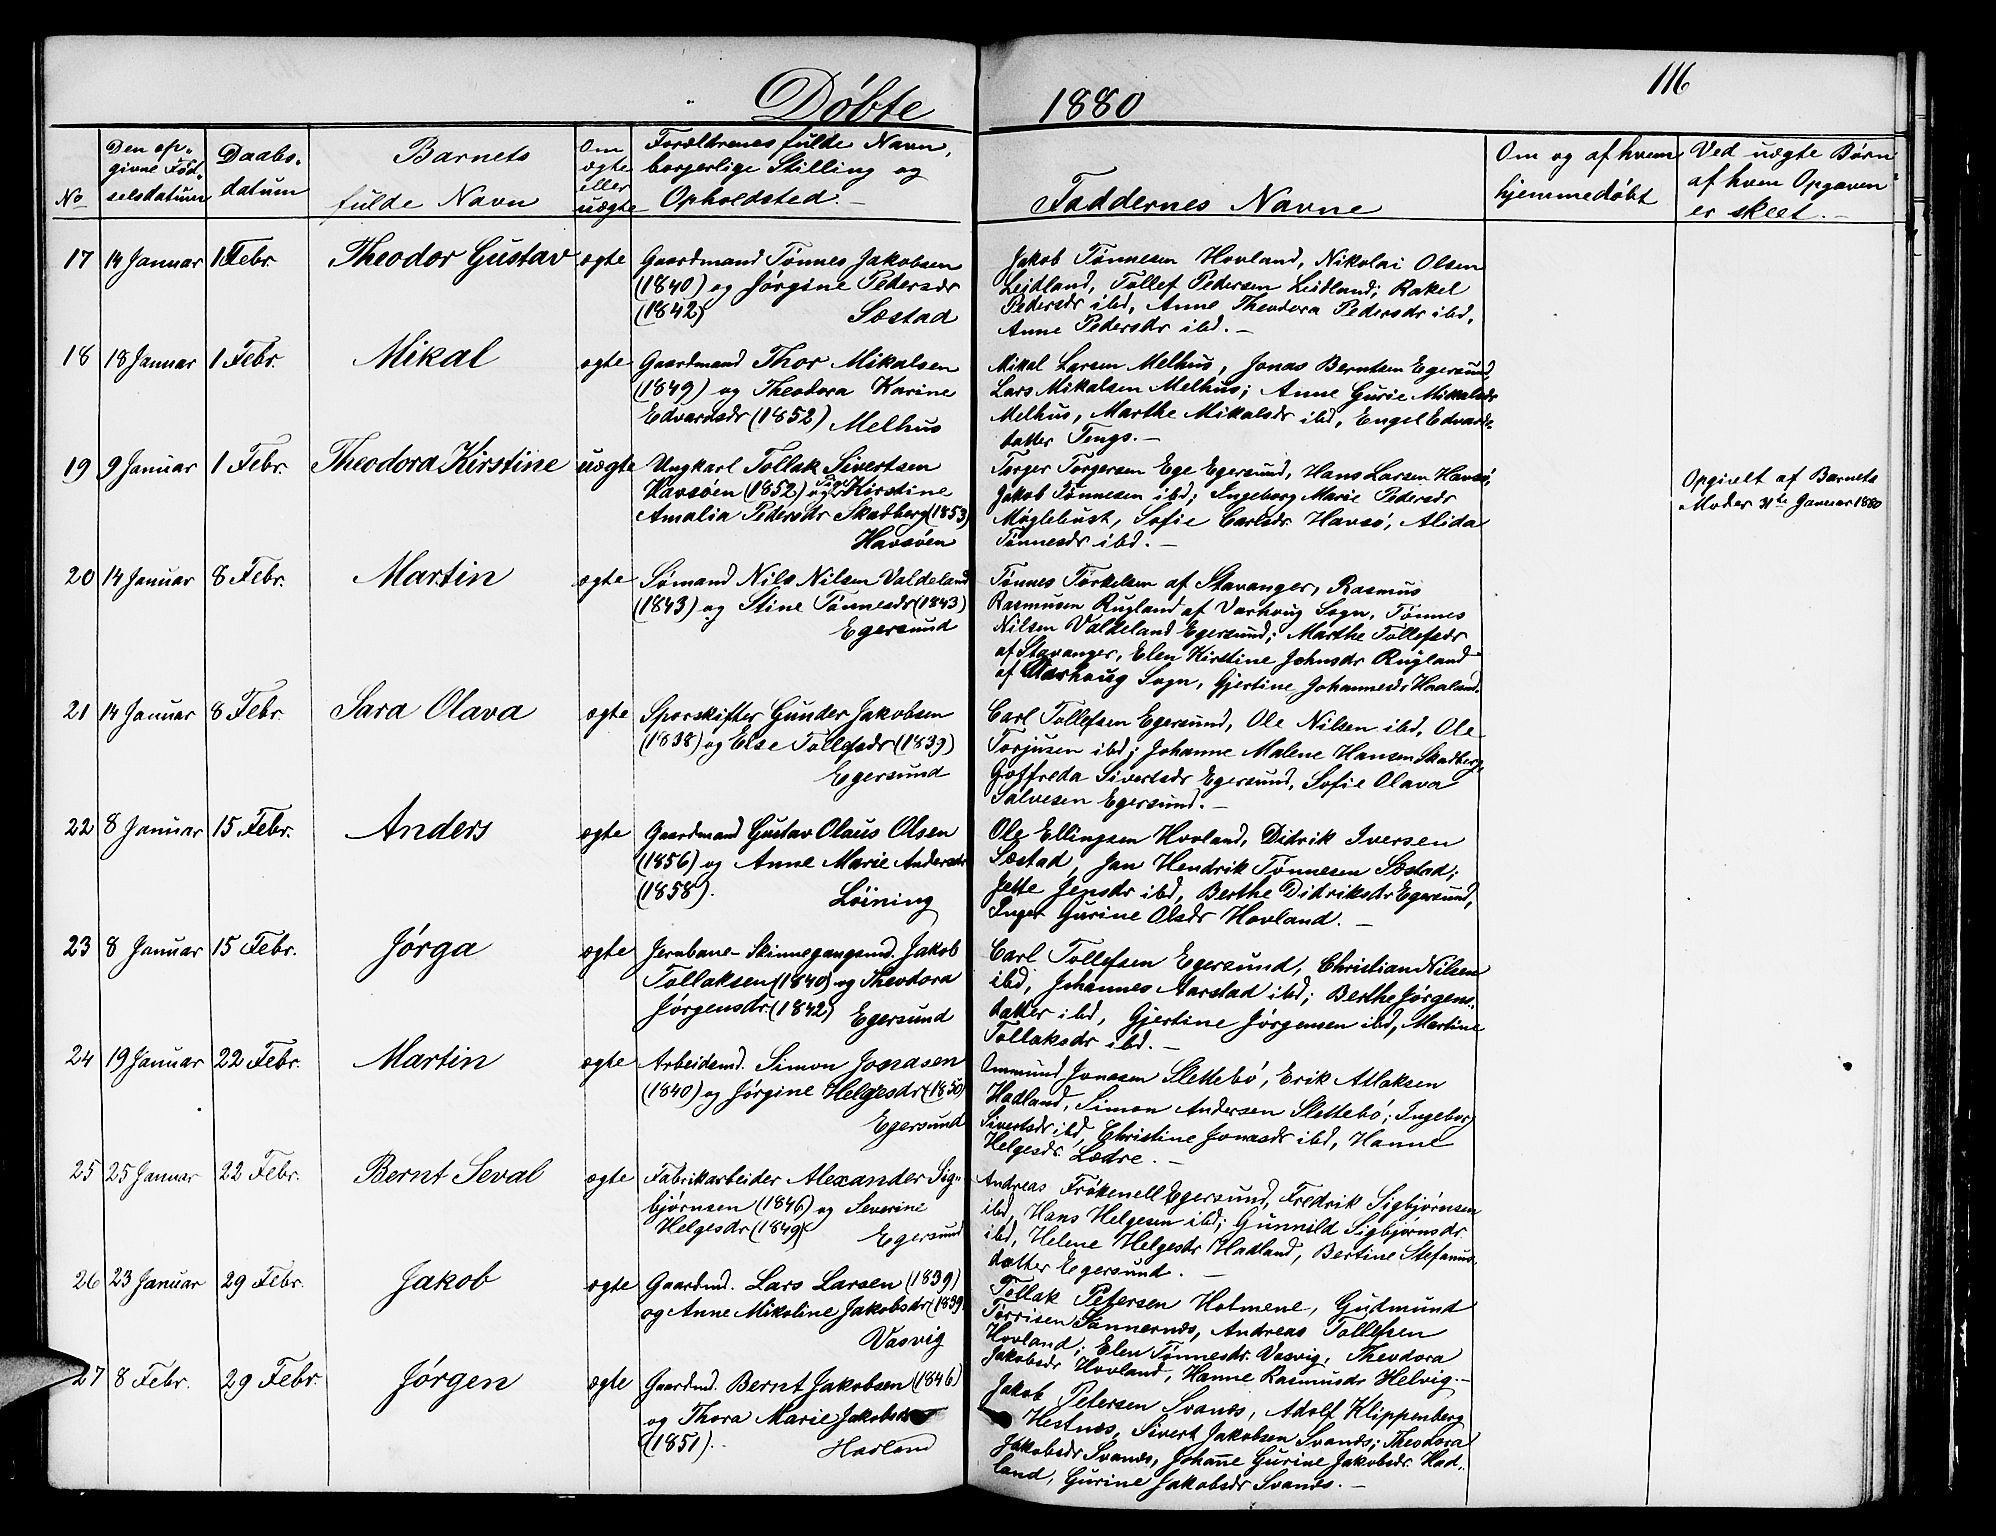 116
Døbte 1880
No
Den op-
givne Fød-
selsdatum
Daabs-
datum
Barnets
fulde Navn
Om
ægte
eller
uægte
Forældrenes fulde Navn,
borgerlige Stilling og
Opholdsted.-
Faddernes Navne
Om og af hvem
hjemmedøbt
Ved uægte Børn
af hvem Opgaven
er skeet.-
17 14 Januar 1 Febr. Theodor Gustav ægte
Gaardmand Tønnes Jakobsen
(1840) og Jørgine Pedersdr
(1842) Sæstad
Jakob Tønnesen Hovland, Nikolai Olsen
Leidland, Tollef Pedersen Leidland; Rakel
Pedersdr ibd, Anne Theodora Pedersdr ibd,
Anne Pedersdr ibd.-
18 18 Januar 1 Febr. Mikal ægte
Gaardmand Thor Mikalsen
(1849) og Theodora Karine
Edvardsdr (1852) Melhus
Mikal Larsen Melhus, Jonas Berntsen Egersund,
Lars Mikalsen Melhus; Anne Gurie Mikalsdr
Melhus, Marthe Mikalsdr ibd, Engel Edvards-
datter Tengs.-
19 9 Januar 1 Febr. Theodora Kirstine uægte
Ungkarl Tollak Sivertsen
Havsøen (1852) og Pige Kirstine
Amalia Pedersdr Skadberg (1853)
Havsøen
Torger Torgersen Ege Egersund, Hans Larsen Havsø,
Jakob Tønnesen ibd; Ingeborg Marie Pedersdr
Møglebust, Sofie Carlsdr Havsø, Alida
Tønnesdr ibd.-
Opgivelt af Barnets
Moder 31te Januar 1880
20 14 Januar 8 Febr. Martin ægte
Sømand Nils Nilsen Valdeland
(1843) og Stine Tønnesdr (1843)
Egersund
Tønnes Torkelsen af Stavanger, Rasmus
Rasmusen Rugland af Varhoug Sogn, Tønnes
Nilsen Valdeland Egersund; Marthe Tollefsdr
af Stavanger, Elen Kirstine Johnsdr Rugland
af Varhoug Sogn, Gjertine Johannesdr Haaland.
21 14 Januar 8 Febr. Sara Olava ægte
Sporskifter Gunder Jakobsen
(1838) og Else Tollefsdr (1839)
Egersund
Carl Tollefsen Egersund, Ole Nilsen ibd, Ole
Torjusen ibd; Johanne Malene Hansen Skadberg,
Goffreda Sivertsdr Egersund, Sofie Olava
Salvesen Egersund.-
22 8 Januar 15 Febr. Anders ægte
Gaardmand Gustav Olaus Olsen
(1856) og Anne Marie Andersdr
(1858). Løining
Ole Ellingsen Hovland, Didrik Iversen
Sæstad, Jan Hendrik Tønnesen Sæstad;
Jette Jensdr ibd, Berthe Didriksdr Egersund,
Inger Gurine Olsdr Hovland.-
23 8 Januar 15 Febr. Jørga ægte
Jernbane-Skinnegangsmd. Jakob
Tollaksen (1840) og Theodora
Jørgensdr (1842) Egersund
Carl Tollefsen Egersund, Christian Nilsen
ibd, Johannes Aarstad ibd; Berthe Jørgens-
datter ibd, Gjertine Jørgensen ibd, Martine
Tollaksdr ibd.-
24 19 Januar 22 Febr. Martin ægte
Arbeidsmd. Simon Jonasen
(1840) og Jørgine Helgesdr (1850)
Egersund
Ommund Jonasen Slettebø, Erik Atlaksen
Hadland, Simon Andersen Slettebø; Ingeborg
Sivertsdr ibd, Christine Jonasdr ibd, Hanne
Helgesdr Lædre.-
25 25 Januar 22 Febr. Bernt Seval ægte
Fabrikarbeider Alexander Sig-
bjørnsen (1846) og Severine
Helgesdr (1849) Egersund
Andreas Frøkenell Egersund, Fredrik Sigbjørnsen
ibd, Hans Helgesen ibd; Gunnild Sigbjørnsdr
ibd, Helene Helgesdr Hadland, Bertine Stefanus-
datter Egersund.-
26 23 Januar 29 Febr. Jakob ægte
Gaardmd. Lars Larsen (1839)
og Anne Mikoline Jakobsdr (1839)
Vasvig
Tollak Petersen Hotmene, Gudmund
Torrisen Sannernæs, Andreas Tollefsen
Hovland; Elen Tønnesdr. Vasvig, Theodora
Jakobsdr Hovland, Hanne Rasmusdr Helvig.-
27 8 Febr. 29 Febr. Jørgen ægte
Gaardmd. Bernt Jakobsen (1846)
og Thora Marie Jakobsdr
(1851). Hadland
Jakob Petersen Svanæs, Adolf Klippenberg
Hestnæs, Sivert Jakobsen Svanæs; Theodora
Jakobsdr Svanæs, Johanne Gurine Jakobsdr. Had-
land, Gurine Jakobsdr Svanæs.-